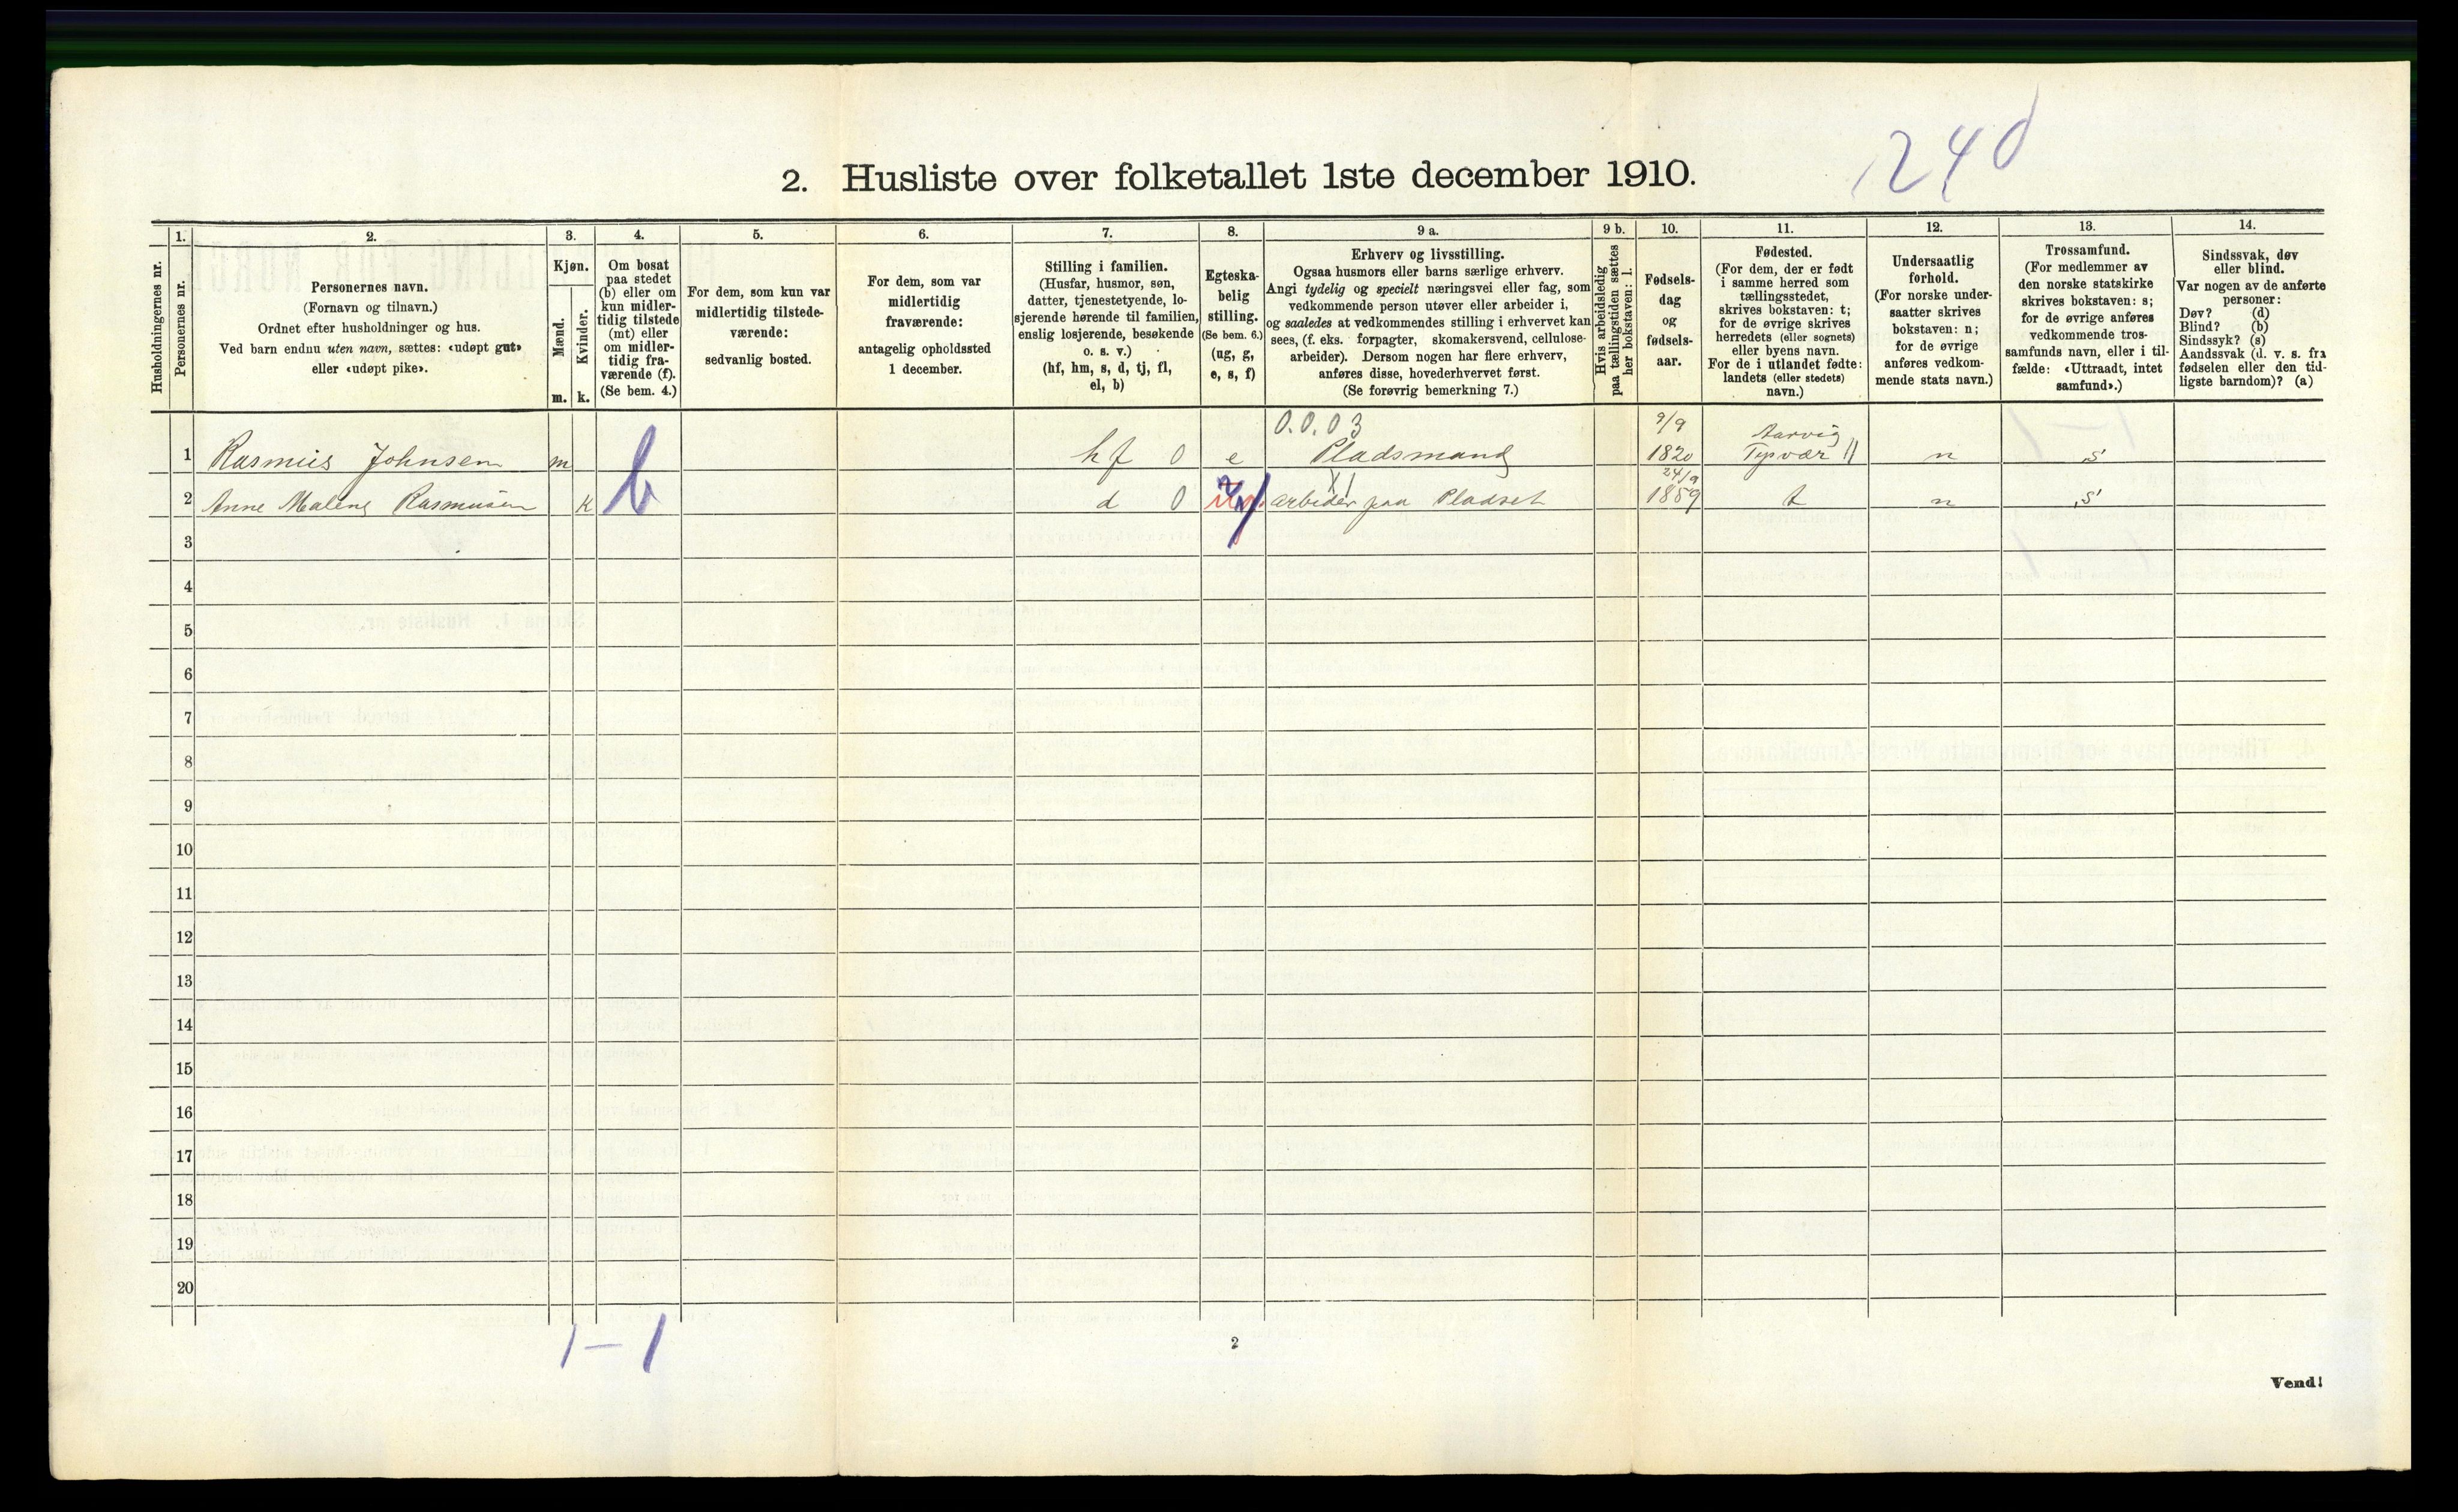 240
2. Husliste over folketallet 1ste december 1910.
Husholdningernes nr.
1.
Personernes nr.
2.
Personernes navn.
(Fornavn og tilnavn.)
Ordnet efter husholdninger og hus.
Ved barn endnu uten navn, sættes: «udøpt gut»
eller «udøpt pike».
3.
Kjøn.
Mænd.
Kvinder.
m. k.
4.
Om bosat
paa stedet
(b) eller om
kun midler-
tidig tilstede
(mt) eller
om midler-
tidig fra-
værende (f).
(Se bem. 4.)
5.
For dem, som kun var
midlertidig tilstede-
værende:
sedvanlig bosted.
6.
For dem, som var
midlertidig
fraværende:
antagelig opholdssted
1 december.
7.
Stilling i familien.
(Husfar, husmor, søn,
datter, tjenestetyende, lo-
sjerende hørende til familien,
enslig losjerende, besøkende
o. s. v.)
(hf, hm, s, d, tj, fl,
el, b)
8.
Egteska-
belig
stilling.
(Se bem. 6.)
(ug, g,
e, s, f)
9 a.
Erhverv og livsstilling.
Ogsaa husmors eller barns særlige erhverv.
Angi tydelig og specielt næringsvei eller fag, som
vedkommende person utøver eller arbeider i,
og saaledes at vedkommendes stilling i erhvervet kan
sees, (f. eks. forpagter, skomakersvend, cellulose-
arbeider). Dersom nogen har flere erhverv,
anføres disse, hovederhvervet først.
(Se forøvrig bemerkning 7.)
9 b.
Hvis arbeidsledig
paa tællingstiden sættes
her bokstaven: l.
10.
Fødsels-
dag
og
fødsels-
aar.
11.
Fødested.
(For dem, der er født
i samme herred som
tællingsstedet,
skrives bokstaven: t;
for de øvrige skrives
herredets (eller sognets)
eller byens navn.
For de i utlandet fødte:
landets (eller stedets)
navn.)
12.
Undersaatlig
forhold.
(For norske under-
saatter skrives
bokstaven: n;
for de øvrige
anføres vedkom-
mende stats navn.)
13.
Trossamfund.
(For medlemmer av
den norske statskirke
skrives bokstaven: s;
for de øvrige anføres
vedkommende tros-
samfunds navn, eller i til-
fælde: «Uttraadt, intet
samfund».)
14.
Sindssvak, døv
eller blind.
Var nogen av de anførte
personer:
Døv? (d)
Blind? (b)
Sindssyk? (s)
Aandssvak (d. v. s. fra
fødselen eller den tid-
ligste barndom)? (a)
0.0.03 9/9 Aarvig
1 Rasmus Johnsen m b hf 0 e Pladsmand 1820 Tysvær 11 n s
24/9
2 Anne Malene Rasmusen k d 0 arbeider paa Pladset 1859 t n s
3
4
5
6
7
8
9
10
11
12
13
14
15
16
17
18
19
20
1 - 1
2
Vend!